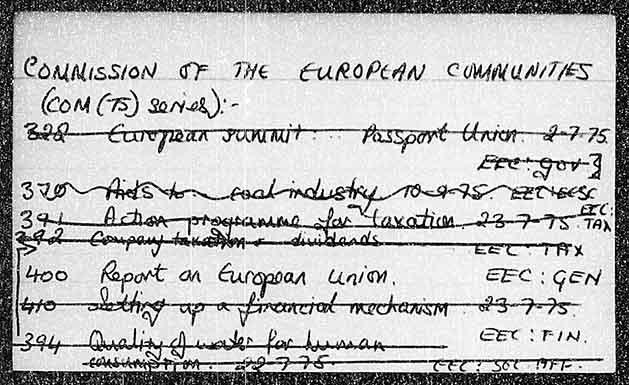 COMMISSION OF THE EUROPEAN COMMUNITIES
(COM (75) series):-
328 European summit: Passport Union. 2-7-75.
EEC: gov
370 Aids to coal industry 10-9-75. EEC: ECSC
391 Action programme for taxation. 23-7-75. EEC: TAX
392 Company taxation & dividends
EEC: TAX
400 Report on European Union. EEC: GEN
410 Setting up a financial mechanism 23-7-75.
EEC: FIN.
394 Quality of water for human
consumption. 22-7-75. EEC: SOC. AFF.